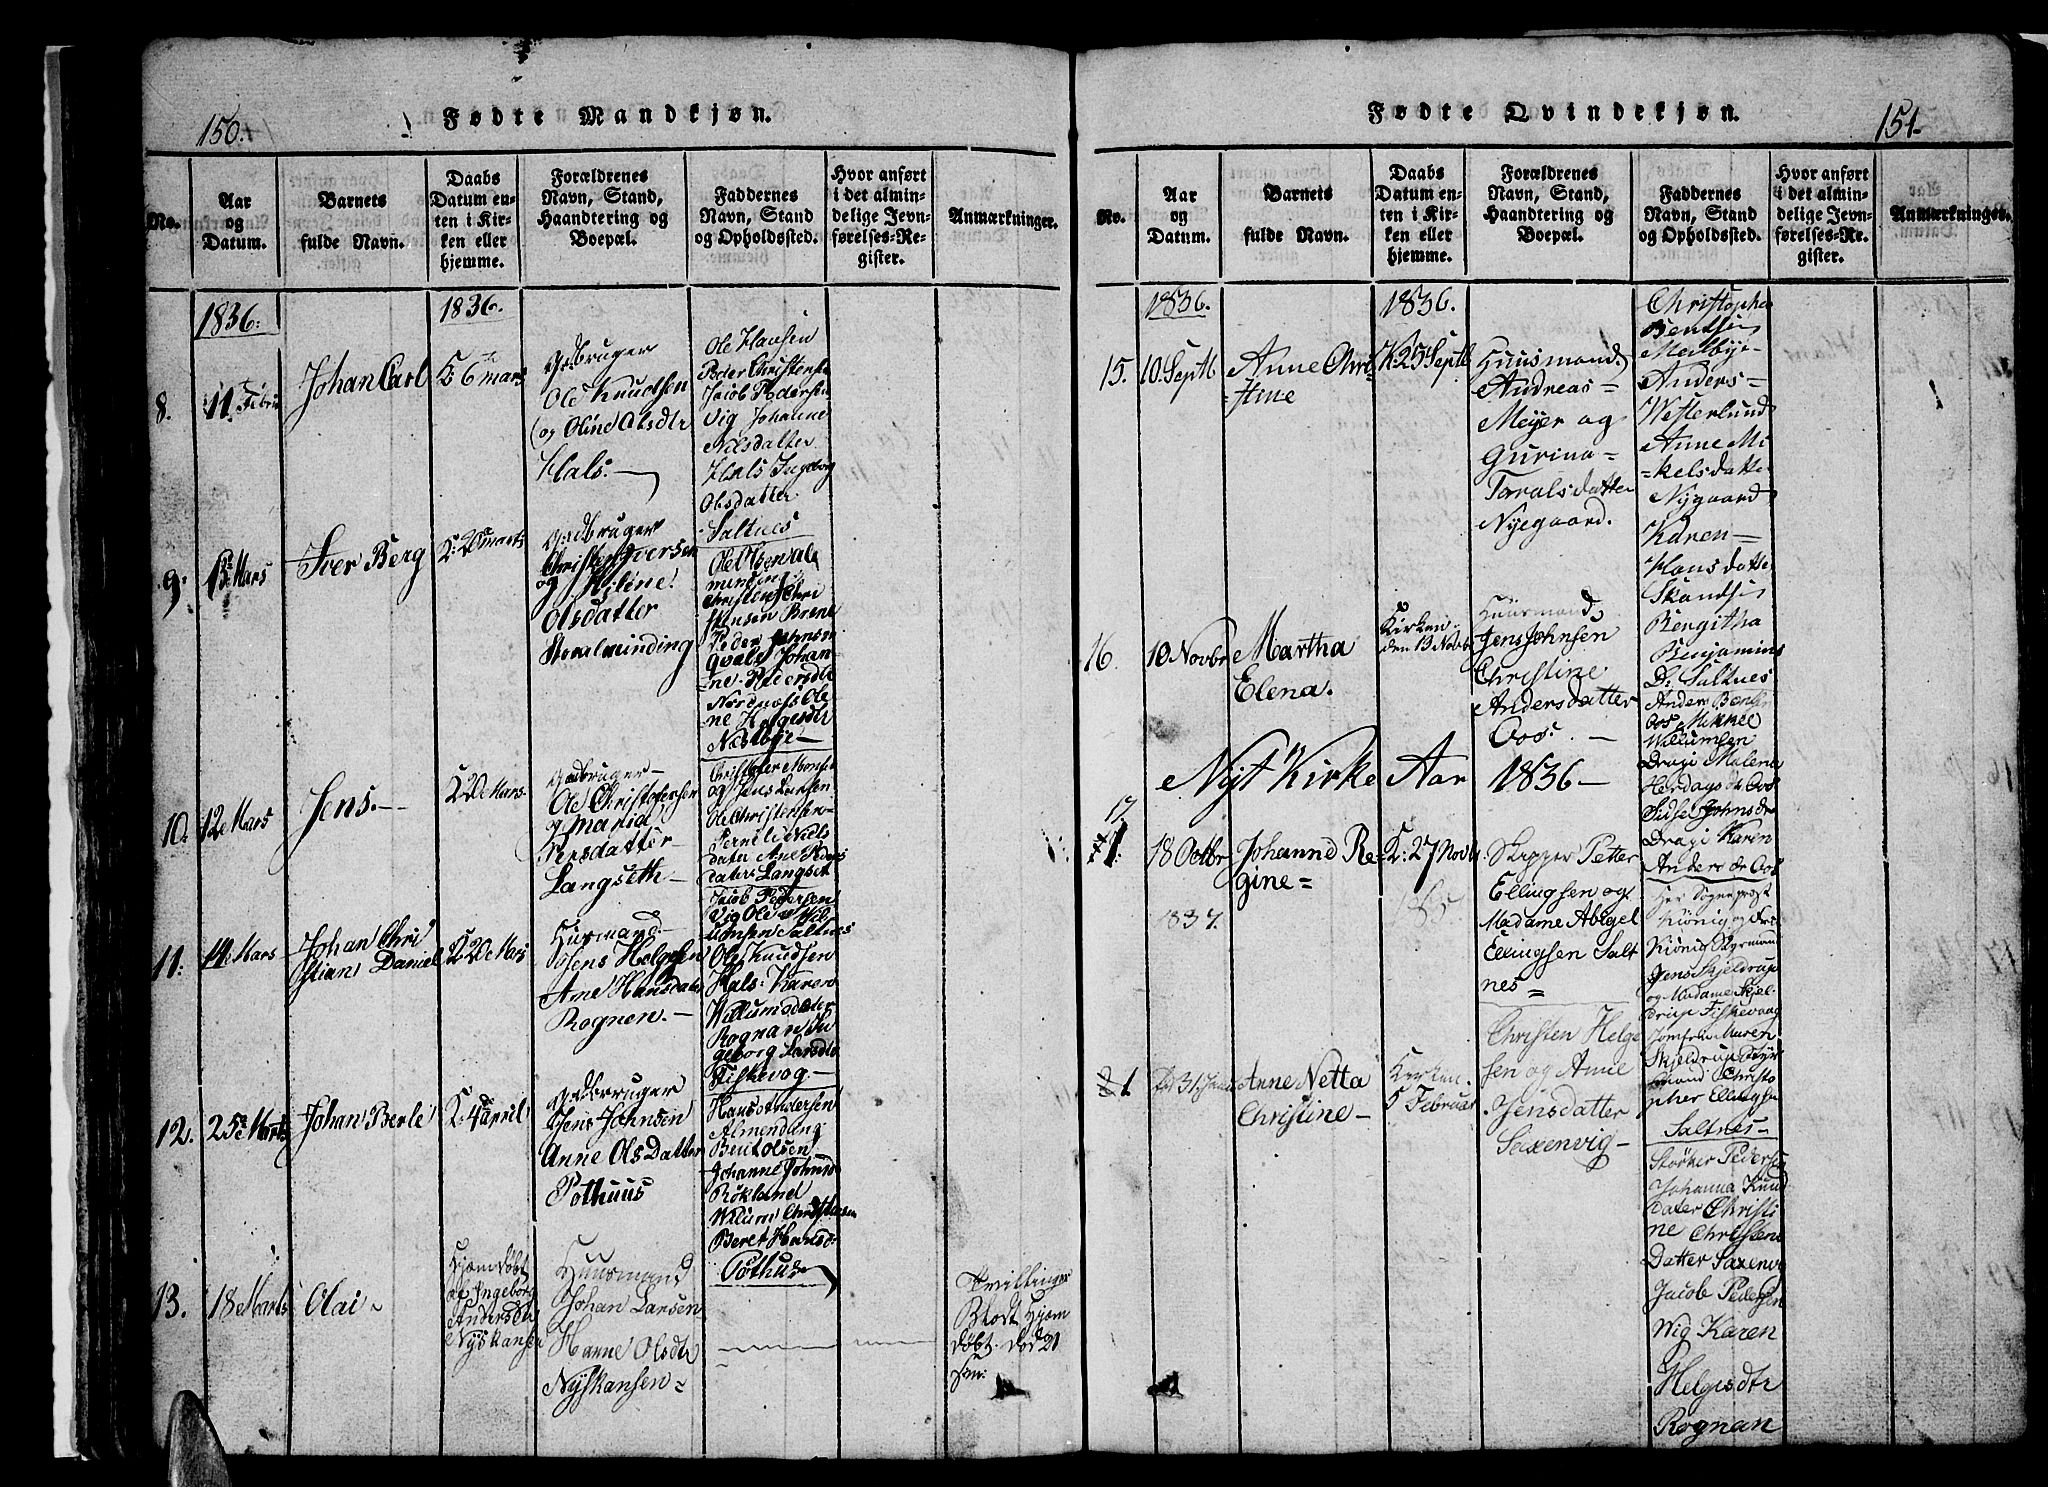 150.
Fødte Mandkjøn.
No.
Aar
og
Datum.
Barnets
fulde Navn.
Daabs
Datum en-
ten i Kir-
ken eller
hjemme.
Forældrenes
Navn, Stand,
Haandtering og
Boepæl.
Faddernes
Navn, Stand
og Opholdssted.
Hvor anført
i det almin-
delige Jevn-
førelses-Re-
gister.
Anmærkninger.
1836.
1836.
8.
11 Febru
Johan Carl
K: 6te mars
Gdbruger
Ole Knudsen
og Olina Olsdtr
Hals.
Ole Hansen
Peder Christense
Jacob Pedersen
Vig Johanne
Nilsdatter
Hals Ingeborg
Olsdatter
Saltnes
9.
13e Mars
Iver Berg
K: 20e marts
Gdbruger
Christen Iversen
og Helene
Olsdatter
Storalminding
Ole Olsen Al
mindin
Christen Chri
stensen Brene
Peder Johnsen
Qvale Johan-
ne Pedersdtr
Nordnes Ole
ne Helgesdtr
Nestbye
10.
12e Mars
Jens.
K 20e Mars
Gdbruger
Ole Christofersen
og Maria
Persdatter
Langseth
Christofer Monse
og Jens Larsen
Ole Christensen
Pernele Nils
dater Ane Peders
dater Langset
11.
14e Mars
Johan Chri
stian Daniel
K 20e Mars
Husmand
Jens Helgesen
Ane Hansdater
Rognen.
Jacob Pedersen
Vig Ole Wil-
umsen Saltnes
Ole Knudsen
Hals: Karen
Willumsdater
Rognan In
geborg Larsdtr
Fiskevog
12.
25e Marts
Johan Berle
K: 4de april
Gdbruger
Jens Johnsen
Anne Olsdatter
Pothuus
Hans Andersen
Almending
Bent Olsen
Johanne Johns
Røkland
Wilum Christensen
Beret Hansd
Pothus
13.
18 Marts
Olai
Hjemdøbt
af Ingeborg
Andersdtr
Nyskansen
Huusmand
Johan Larsen
Hanne Olsdtr
Nyskansen
Tvillinger
Blodt Hjem
døbt. død 21
151.
Fødte Qvindekjøn.
No.
Aar
og
Datum.
Barnets
fulde Navn.
Daabs
Datum en-
ten i Kir-
ken eller
hjemme.
Forældrenes
Navn, Stand,
Haandtering og
Boepæl.
Faddernes
Navn, Stand
og Opholdssted.
Hvor anført
i det almin-
delige Jevn-
førelses-Re-
gister.
Anmærkninger.
1836.
1836.
15.
10. Septb
Anne Chri-
stine
K: 25 Septb
Huusmand
Andreas
Meyer og
Gurina
Taralsdatter
Nyegaard.
Christopher
Bentsen
Medbye
Anders
Westerlund
Anne Mi-
kelsdatter
Nygaard
Karen
Hansdatte
Skandse
Bergitha
Benjamins
D: Saltnes
16.
10 Novbr
Martha
Elena.
Kirken
den 13 Novb
Huusmand
Jens Johnsen
Christine
Andersdatter
Oos.
Anders Bentsen
Oos Mikkel
Willumsen
Dragi Malena
Herdags dr Oos
Sidsel Johnsdr
Dragi Karen
Anders dr Oos
Nyt Kirke Aar 1836
17.
1.
18 Octbr
Johanne Re-
gine
K: 27 Novb.
Skipper Petter
Ellingsen og
Madame Abigel
Ellingsen Salt
nes
Her Sogneprest
Kiönig og Fru
Kiönig Styrmand
Jens Skjeldrup
og Madame Skjel-
drup Fiskevaag
Jomfru Maren
Skjeldrup Styr
mand Christo
pher Ellingse
Saltnes
1837.
1
fød 31 Janu
Anne Netta
Christine
Kirken
5 Februar
Christen Helge
sen og Anne
Jensdatter
Saxenvig
Størker Pedersen
Johanna Knud
dater Christi
ne Christens
Datter Saxenvi
Jacob Pedersen
Wig Karen
Helgesdtr
Rognan